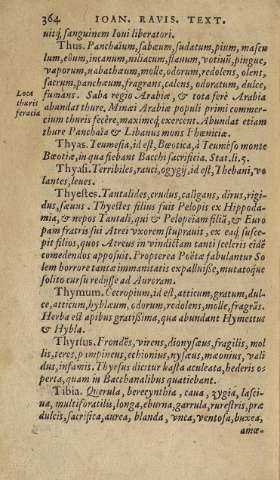 364 IOAN. RAVIS. TEXT.
uitq́; sanguinem Ioui libatori.
Thus. Panchaïum, sabæum, sudatum, pium, mascu
lum, eoum, incanum, niliacum, flauum, votiuū, pingue,
vaporum, nabathæum, molle, odorum, redolens, olens,
sacrum, panchæum, fragrans, calens, odoratum, dulce,
Loca
thuris
feracia
fumans. Saba regio Arabiæ, & tota ferè Arabia
abundat thure. Minæi Arabiæ populi primi commer-
cium thuris fecêre, maximeq́; exercent. Abundat etiam
thure Panchaia & Libanus mons Phœniciæ.
Thyas. Teumesia, id est, Bœotica, à Teumeso monte
Bœotiæ, in qua fiebant Bacchi sacrificia. Stat. li. 5.
Thyasi. Terribiles, rauci, ogygij, id est, Thebani, vo
lantes, leues.
Thyestes. Tantalides, crudus, caligans, dirus, rigi-
dus, sæuus. Thyestes filius fuit Pelopis ex Hippoda-
mia, & nepos Tantali, qui & Pelopeiam filiã, & Euro
pam fratris sui Atrei vxorem stuprauit, ex eaq́; susce-
pit filios, quos Atreus in vindictam tanti sceleris eidē
comedendos apposuit. Propterea Poëtæ fabulantur So
lem horrore tantæ immanitatis expalluisse, mutatoque
solito cursu redusse ad Auroram.
Thymum. Cecropium, id est, atticum, gratum, dul-
ce, atticum, hyblæum, odorum, redolens, molle, fragrãs.
Herba est apibus gratissima, qua abundant Hymettus
& Hybla.
Thyrsus. Frondēs, virens, dionysæus, fragilis, mol
lis, teres, pampineus, echionius, nysæus, mæonius, vali
dus, infamis. Thyrsus dicitur hasta aculeata, hederis os
perta, quam in Bacchanalibus quatiebant.
Tibia. Querula, berecynthia, caua, zygia, lasci-
ua, multiforatilis, longa, eburna, garrula, rurestris, præ
dulcis, sacrifica, aurea, blanda, vnca, ventosa, buxea,
amœ-